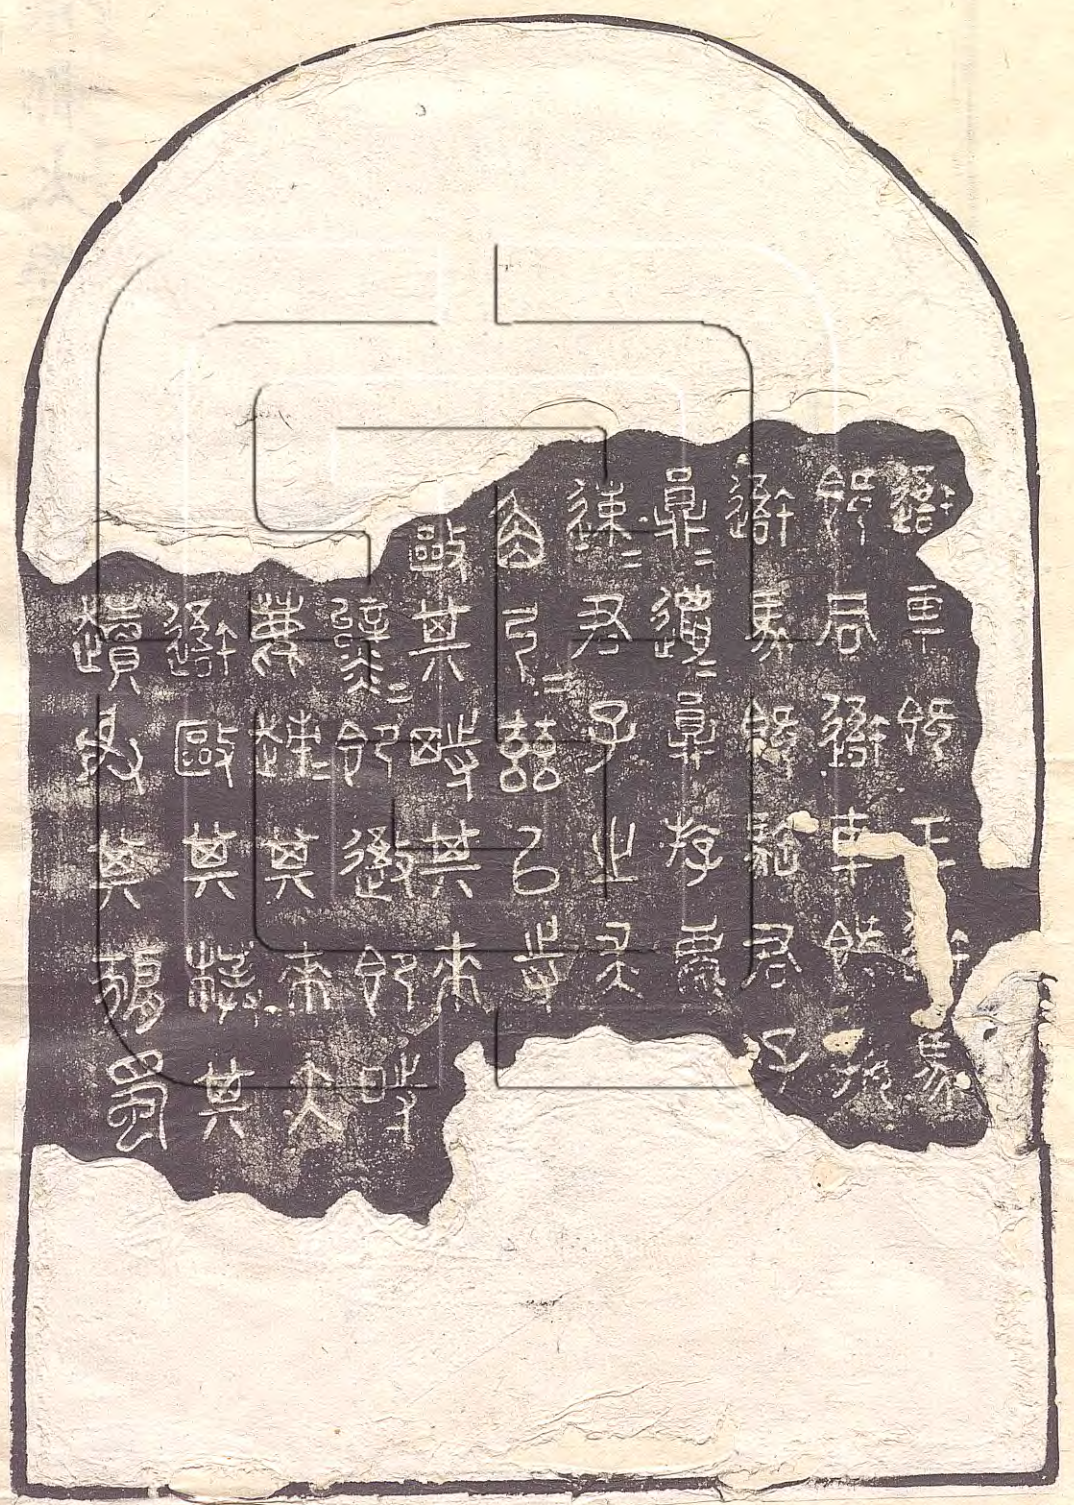 吾車既工吾馬
既同吾車既好
吾馬既䮲君子
員=邋=員斿麀
速=君子之求
角弓=茲以寺
敺其特其來
即吾即時
鹿趚=其來大
吾敺其樸其
射其豜蜀